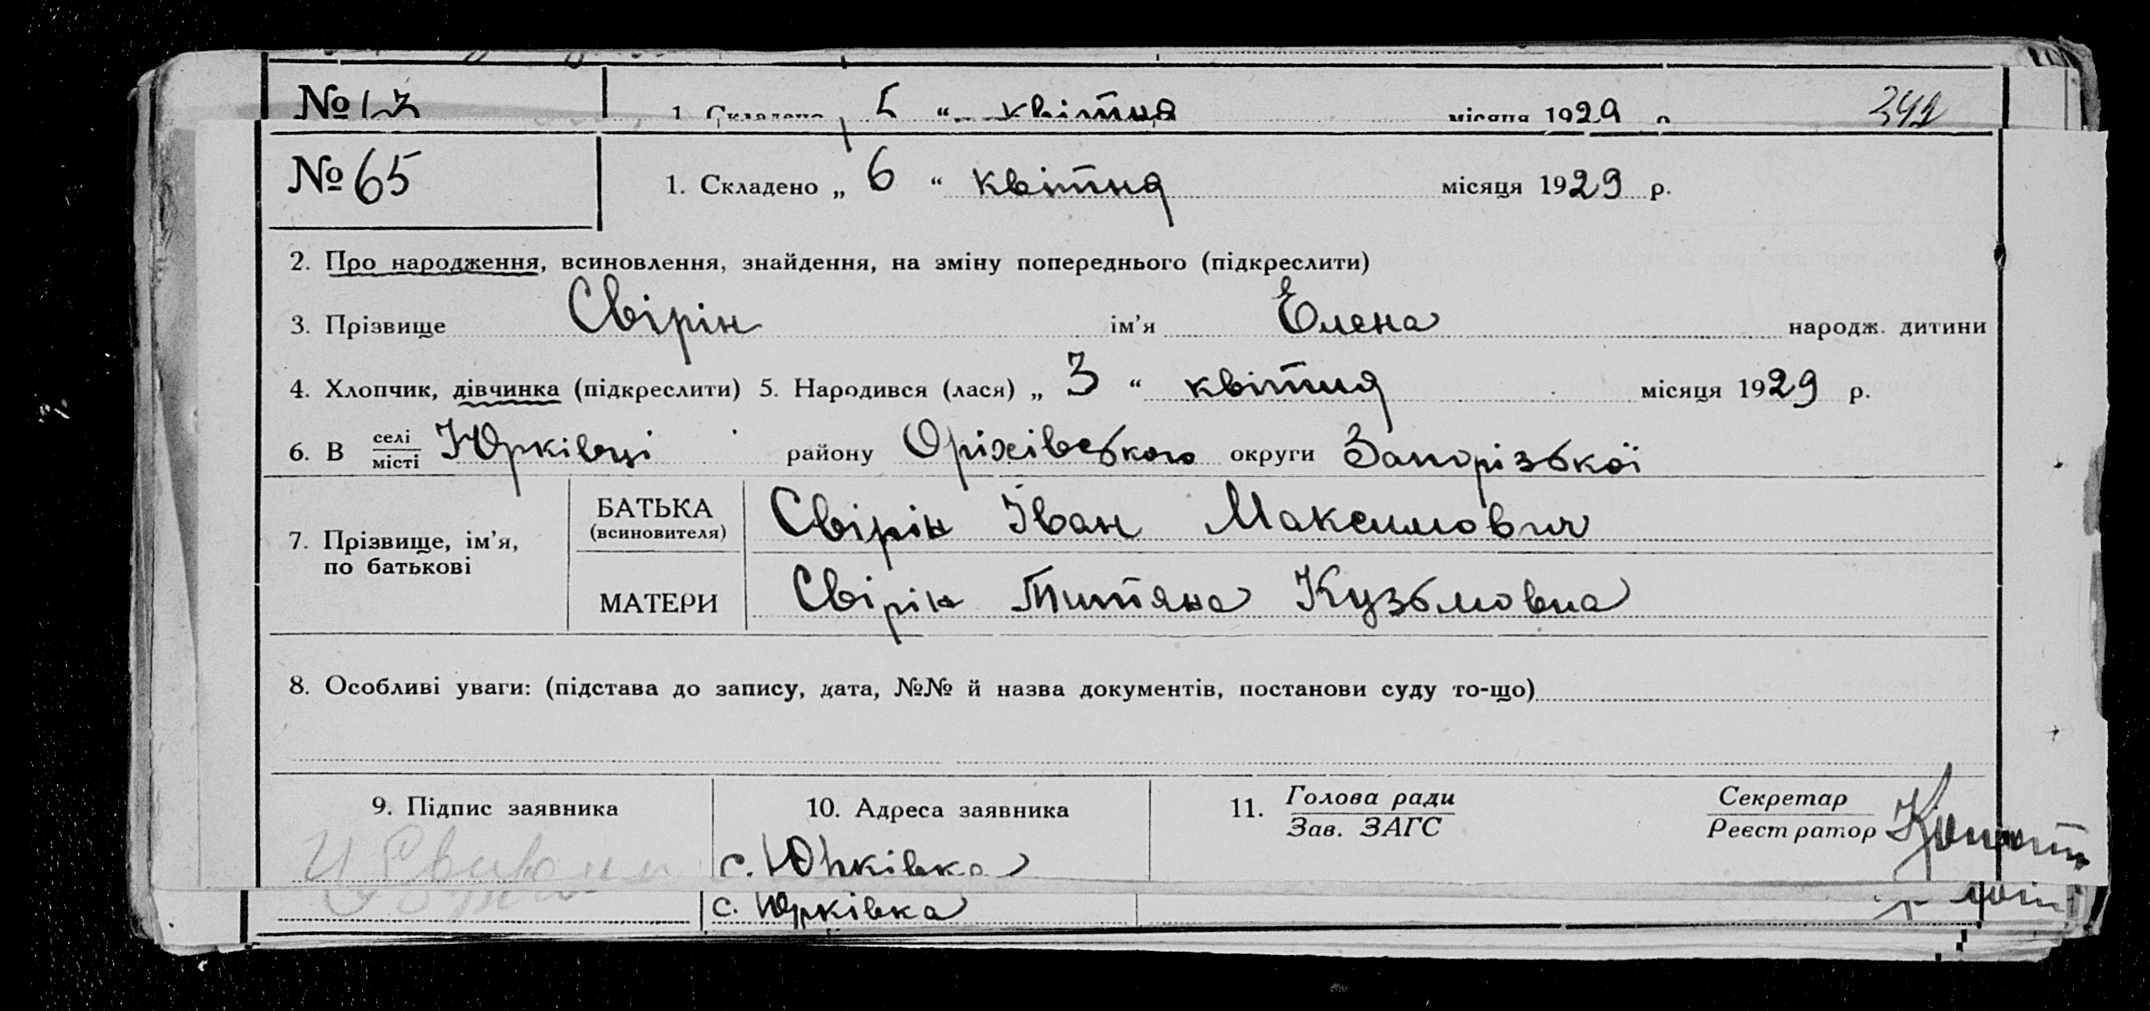 1. Складено „ 5 “ квітня місяця 1929 р. 342
№ 65 1. Складено „ 6 “ квітня місяця 1929 р.
2. Про народження, всиновлення, знайдення, на зміну попереднього (підкреслити)
3. Прізвище Свірін ім’я Елена народж. дитини
4. Хлопчик, дівчинка (підкреслити) 5. Народився (лася) „ 3 “ квітня місяця 1929 р.
6. В селі місті Юрківці району Оріхівського округи Запорізької
7. Прізвище, ім’я, по батькові
БАТЬКА (всиновителя) Свірін Іван Максимович
МАТЕРИ Свірін Титяна Кузьмовна
8. Особливі уваги: (підстава до запису, дата, №№ й назва документів, постанови суду то-що)
9. Підпис заявника 10. Адреса заявника 11. Голова ради Зав. ЗАГС Секретар Реєстратор
с. Юрківка
с. Юрківка